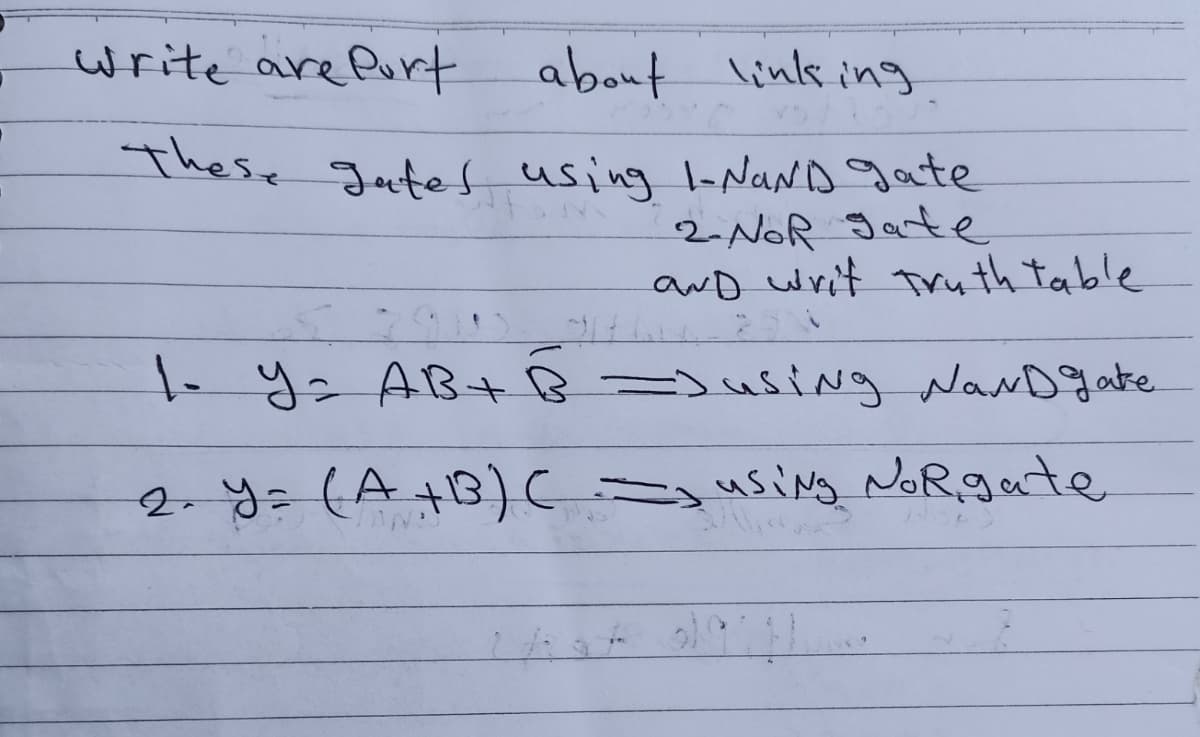 write areport about linking
these gates using 1-NaND gate
2-NoR gate
anD writ Truth table
1- y= AB+ B̅ => using NaNDgate
2- y= (A+B)C => using NoR gate